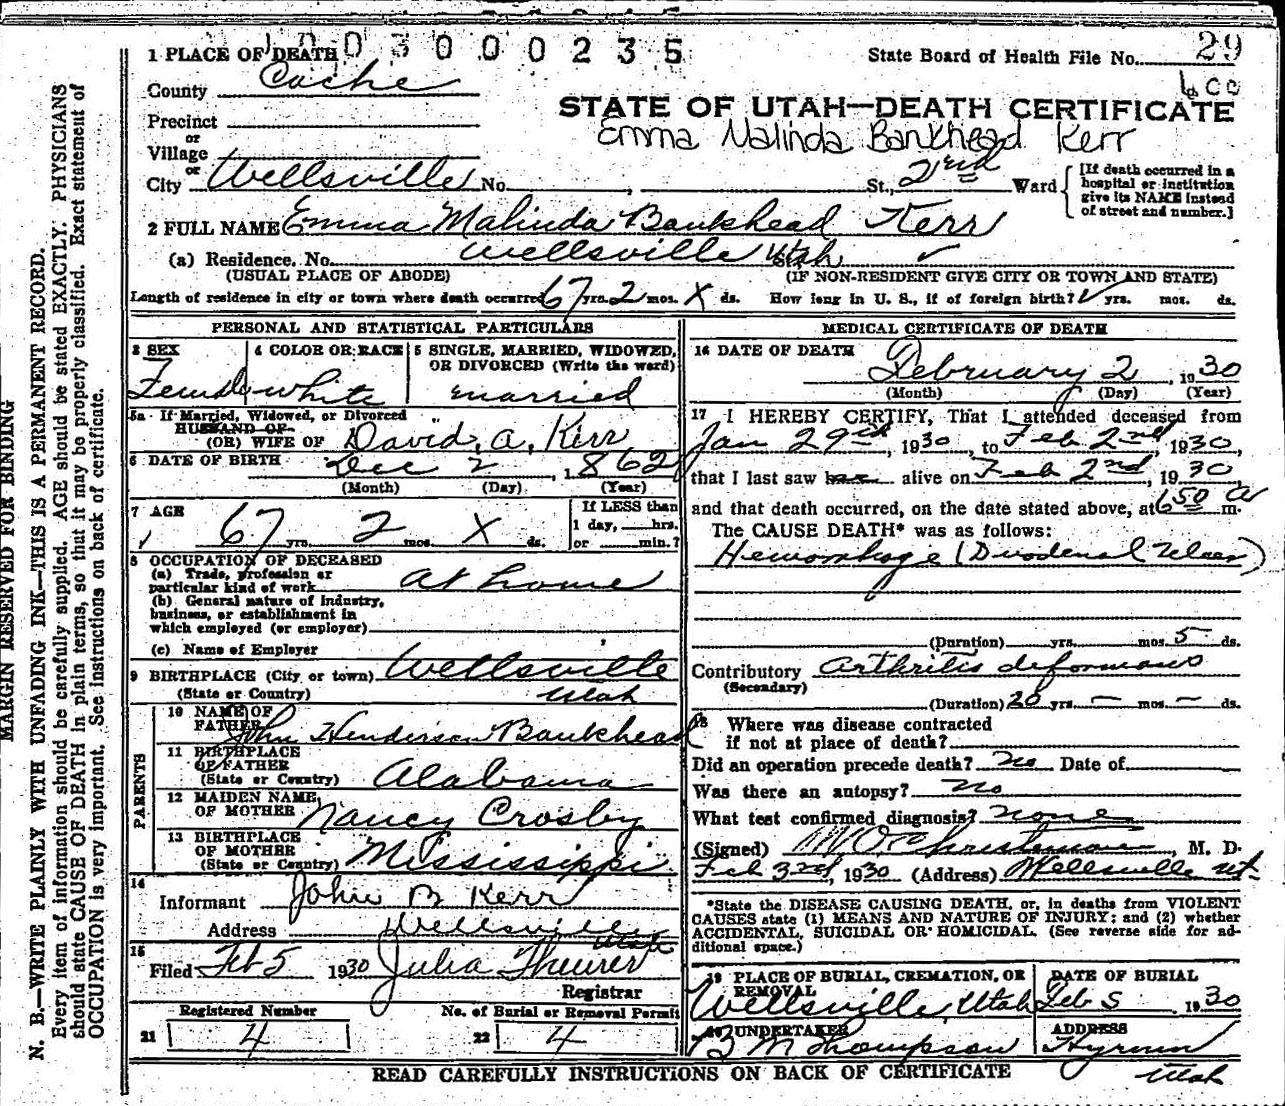 1003000235
1 PLACE OF DEATH
State Board of Health File No. 29
County Cache
600
STATE OF UTAH—DEATH CERTIFICATE
Precinct
Emma Malinda Bankhead Kerr
or
Village
or
City Wellsville No. , St., 2nd Ward
[If death occurred in a
hospital or institution
give its NAME instead
of street and number.]
2 FULL NAME Emma Malinda Bankhead Kerr
(a) Residence. No. Wellsville Utah ✓
(USUAL PLACE OF ABODE) (IF NON-RESIDENT GIVE CITY OR TOWN AND STATE)
Length of residence in city or town where death occurred 67 yrs. 2 mos. X ds. How long in U. S., if of foreign birth? ✓ yrs. mos. ds.
PERSONAL AND STATISTICAL PARTICULARS
3 SEX
Female
4 COLOR OR RACE
white
5 SINGLE, MARRIED, WIDOWED,
OR DIVORCED (Write the word)
married
5a If Married, Widowed, or Divorced
HUSBAND OF
(OR) WIFE OF David. A. Kerr
6 DATE OF BIRTH Dec 2, 1862
(Month) (Day) (Year)
7 AGE
67 yrs. 2 mos. X ds.
If LESS than
1 day, hrs.
or min.?
8 OCCUPATION OF DECEASED
(a) Trade, profession or
particular kind of work At home
(b) General nature of industry,
business, or establishment in
which employed (or employer)
(c) Name of Employer
9 BIRTHPLACE (City or town) Wellsville
(State or Country) Utah
PARENTS
10 NAME OF
FATHER John Henderson Bankhead
11 BIRTHPLACE
OF FATHER
(State or Country) Alabama
12 MAIDEN NAME
OF MOTHER Nancy Crosby
13 BIRTHPLACE
OF MOTHER
(State or Country) Mississippi
14
Informant John B Kerr
Address Wellsville
Utah
15
Filed Feb 5 1930 Julia Theurer
Registrar
Registered Number No. of Burial or Removal Permit
21 4 22 4
MEDICAL CERTIFICATE OF DEATH
16 DATE OF DEATH
February 2, 1930
(Month) (Day) (Year)
17 I HEREBY CERTIFY, That I attended deceased from
Jan 29th, 1930, to Feb 2nd, 1930,
that I last saw her alive on Feb 2nd, 1930,
and that death occurred, on the date stated above, at 6 50 a m.
The CAUSE DEATH* was as follows:
Hemorrhage (Duodenal Ulcer)
(Duration) yrs. mos. 5 ds.
Contributory Arthritis deformans
(Secondary)
(Duration) 20 yrs. — mos. — ds.
18 Where was disease contracted
if not at place of death?
Did an operation precede death? No Date of
Was there an autopsy? No
What test confirmed diagnosis? none
(Signed) , M. D.
Feb 3rd, 1930 (Address) Wellsville Ut.
*State the DISEASE CAUSING DEATH, or, in deaths from VIOLENT
CAUSES state (1) MEANS AND NATURE OF INJURY; and (2) whether
ACCIDENTAL, SUICIDAL OR HOMICIDAL. (See reverse side for ad-
ditional space.)
19 PLACE OF BURIAL, CREMATION, OR
REMOVAL
Wellsville, Utah
DATE OF BURIAL
Feb 5 1930
20 UNDERTAKER
B M Thompson
ADDRESS
Hyrum
Utah
READ CAREFULLY INSTRUCTIONS ON BACK OF CERTIFICATE
MARGIN RESERVED FOR BINDING
N. B.—WRITE PLAINLY WITH UNFADING INK—THIS IS A PERMANENT RECORD.
Every item of information should be carefully supplied. AGE should be stated EXACTLY. PHYSICIANS
should state CAUSE OF DEATH in plain terms, so that it may be properly classified. Exact statement of
OCCUPATION is very important. See instructions on back of certificate.